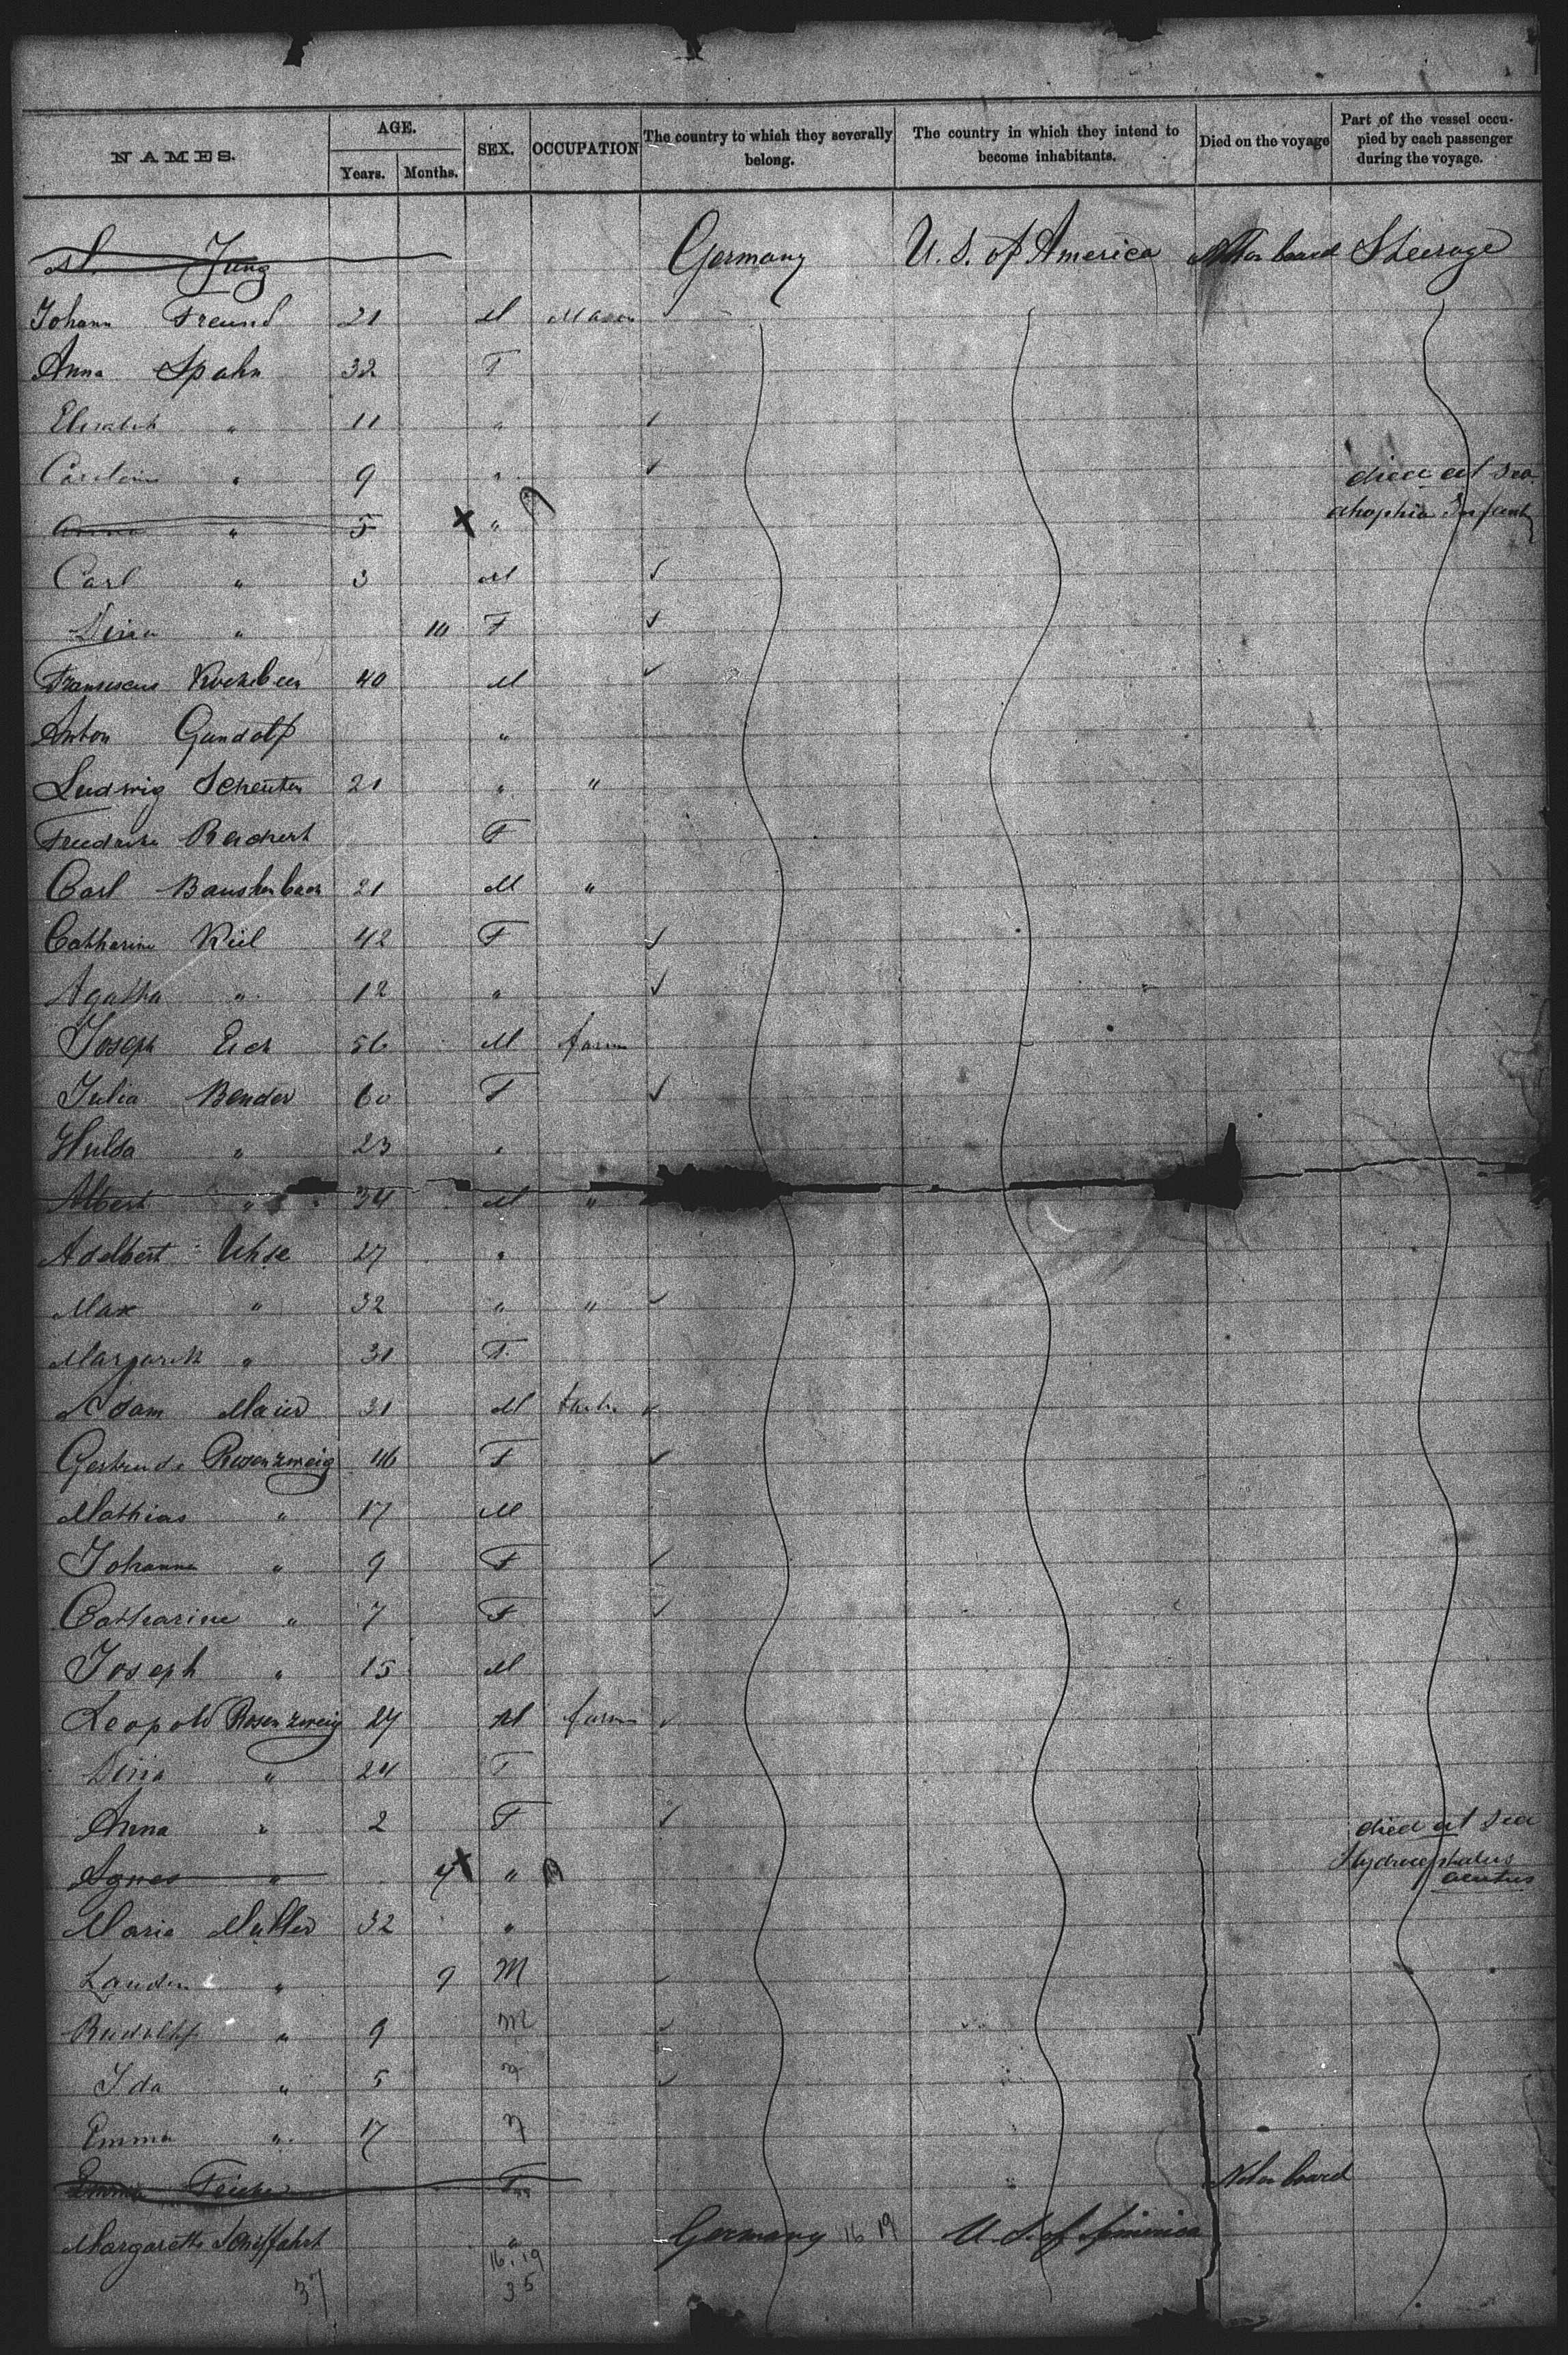 NAMES. AGE. Years. Months. SEX. OCCUPATION The country to which they severally belong. The country in which they intend to become inhabitants. Died on the voyage Part of the vessel occupied by each passenger during the voyage.
Jung Germany U. S. of America Not on board Steerage
Johann Freund 21 M Mason
Anna Spahn 32 F
Elisabeth " 11 "
Caroline " 9 " died at sea
Anna " 5 X " Infant
Carl " 3 M
Dina " 10 F
Franziscus 40 M
Anton Gandolf "
Ludwig Scheuten 21 " "
Friedrike Reichert F
Carl 21 M "
Catharine Kiel 42 F
Agatha " 12 "
Joseph Eich 56 M farm
Julia Bender 60 F
Hulda " 23 "
Albert " 34 M "
Adelbert Uhse 27 "
Max " 32 " "
Margareth " 31 F
Adam Maier 31 M
Gertrude Rosenzweig 46 F
Mathias " 17 M
Johanna " 9 F
Catharine " 7 F
Joseph " 15 M
Leopold Rosenzweig 27 M farm
Dina " 24 F
Anna " 2 F died at sea
Agnes " 4 X " Hydrocephalus acutus
Marie Muller 32 "
" 9 M
Rudolph " 9 M
Ida " 5 F
Emma " 17 F
Emma F Not on board
Margareth Schiffahrt " Germany 16 19 U. S. of America
16. 19
37 35